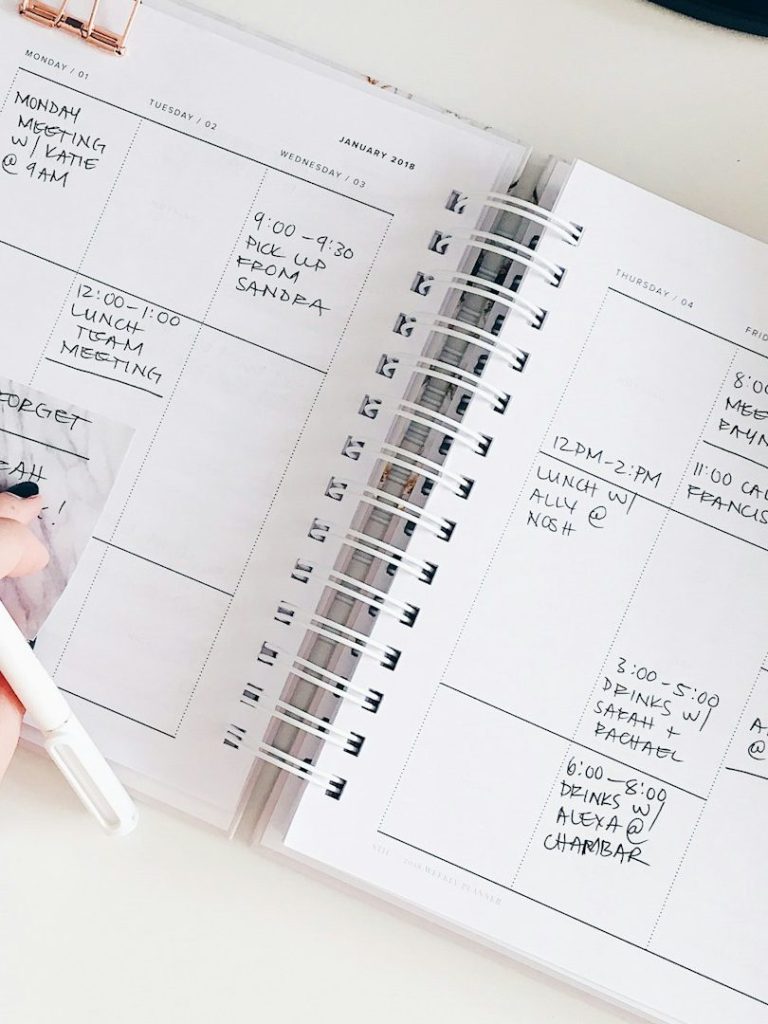 MONDAY / 01
MONDAY
MEETING
W/ KATIE
@ 9AM
TUESDAY / 02
12:00-1:00
LUNCH
TEAM
MEETING
JANUARY 2018
WEDNESDAY / 03
9:00-9:30
PICK UP
FROM
SANDRA
FORGET
THURSDAY / 04
12PM-2PM
LUNCH W/
ALLY @
NOSH
8:00
11:00
3:00-5:00
DRINKS W/
SARAH +
RACHAEL
6:00-8:00
DRINKS W/
ALEXA @
CHAMBAR
@
2018 WEEKLY PLANNER